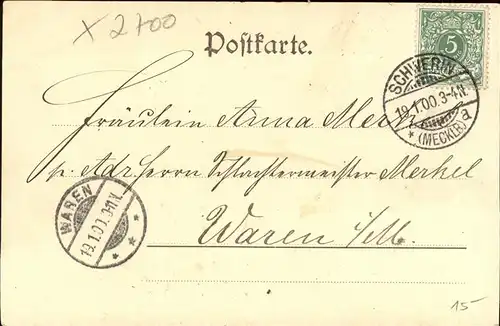 X 2700
Postkarte.
5
SCHWERIN
19.1.00.3-4N.
a
* (MECKLB) *
Fräulein Anna Merkel
p. Adr. Herrn Schlachtermeister Merkel
Waren i/M.
WAREN
19.1.00.
* * *
15-